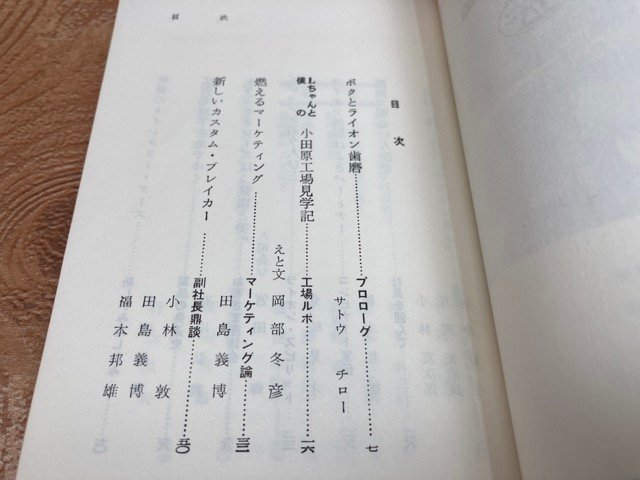 目次
目次
ボクとライオン歯磨……プロローグ……七
サトウ　チロー
Lちゃんと僕の　小田原工場見学記……工場ルポ……一六
えと文　岡部冬彦
燃えるマーケティング……マーケティング論……三三
田島義博
新しいカスタム・ブレイカー……副社長鼎談……五〇
小林敦
田島義博
福本邦雄